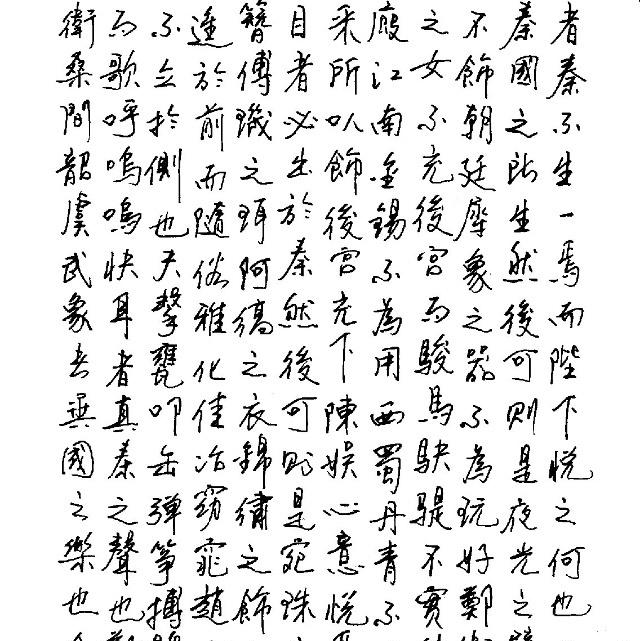 者秦不生一焉而陛下悅之何也
秦國之所生然後可則是夜光之
不飾朝廷犀象之器不為玩好鄭
之女不充後宮而駿馬駃騠不實
廄江南金錫不為用西蜀丹青不
采所以飾後宮充下陳娛心意悅
目者必出於秦然後可則是宛珠
簪傅璣之珥阿縞之衣錦繡之飾
進於前而隨俗雅化佳冶窈窕趙
不立於側也夫擊甕叩缶彈箏搏
而歌呼嗚嗚快耳者真秦之聲也
衛桑間韶虞武象者異國之樂也